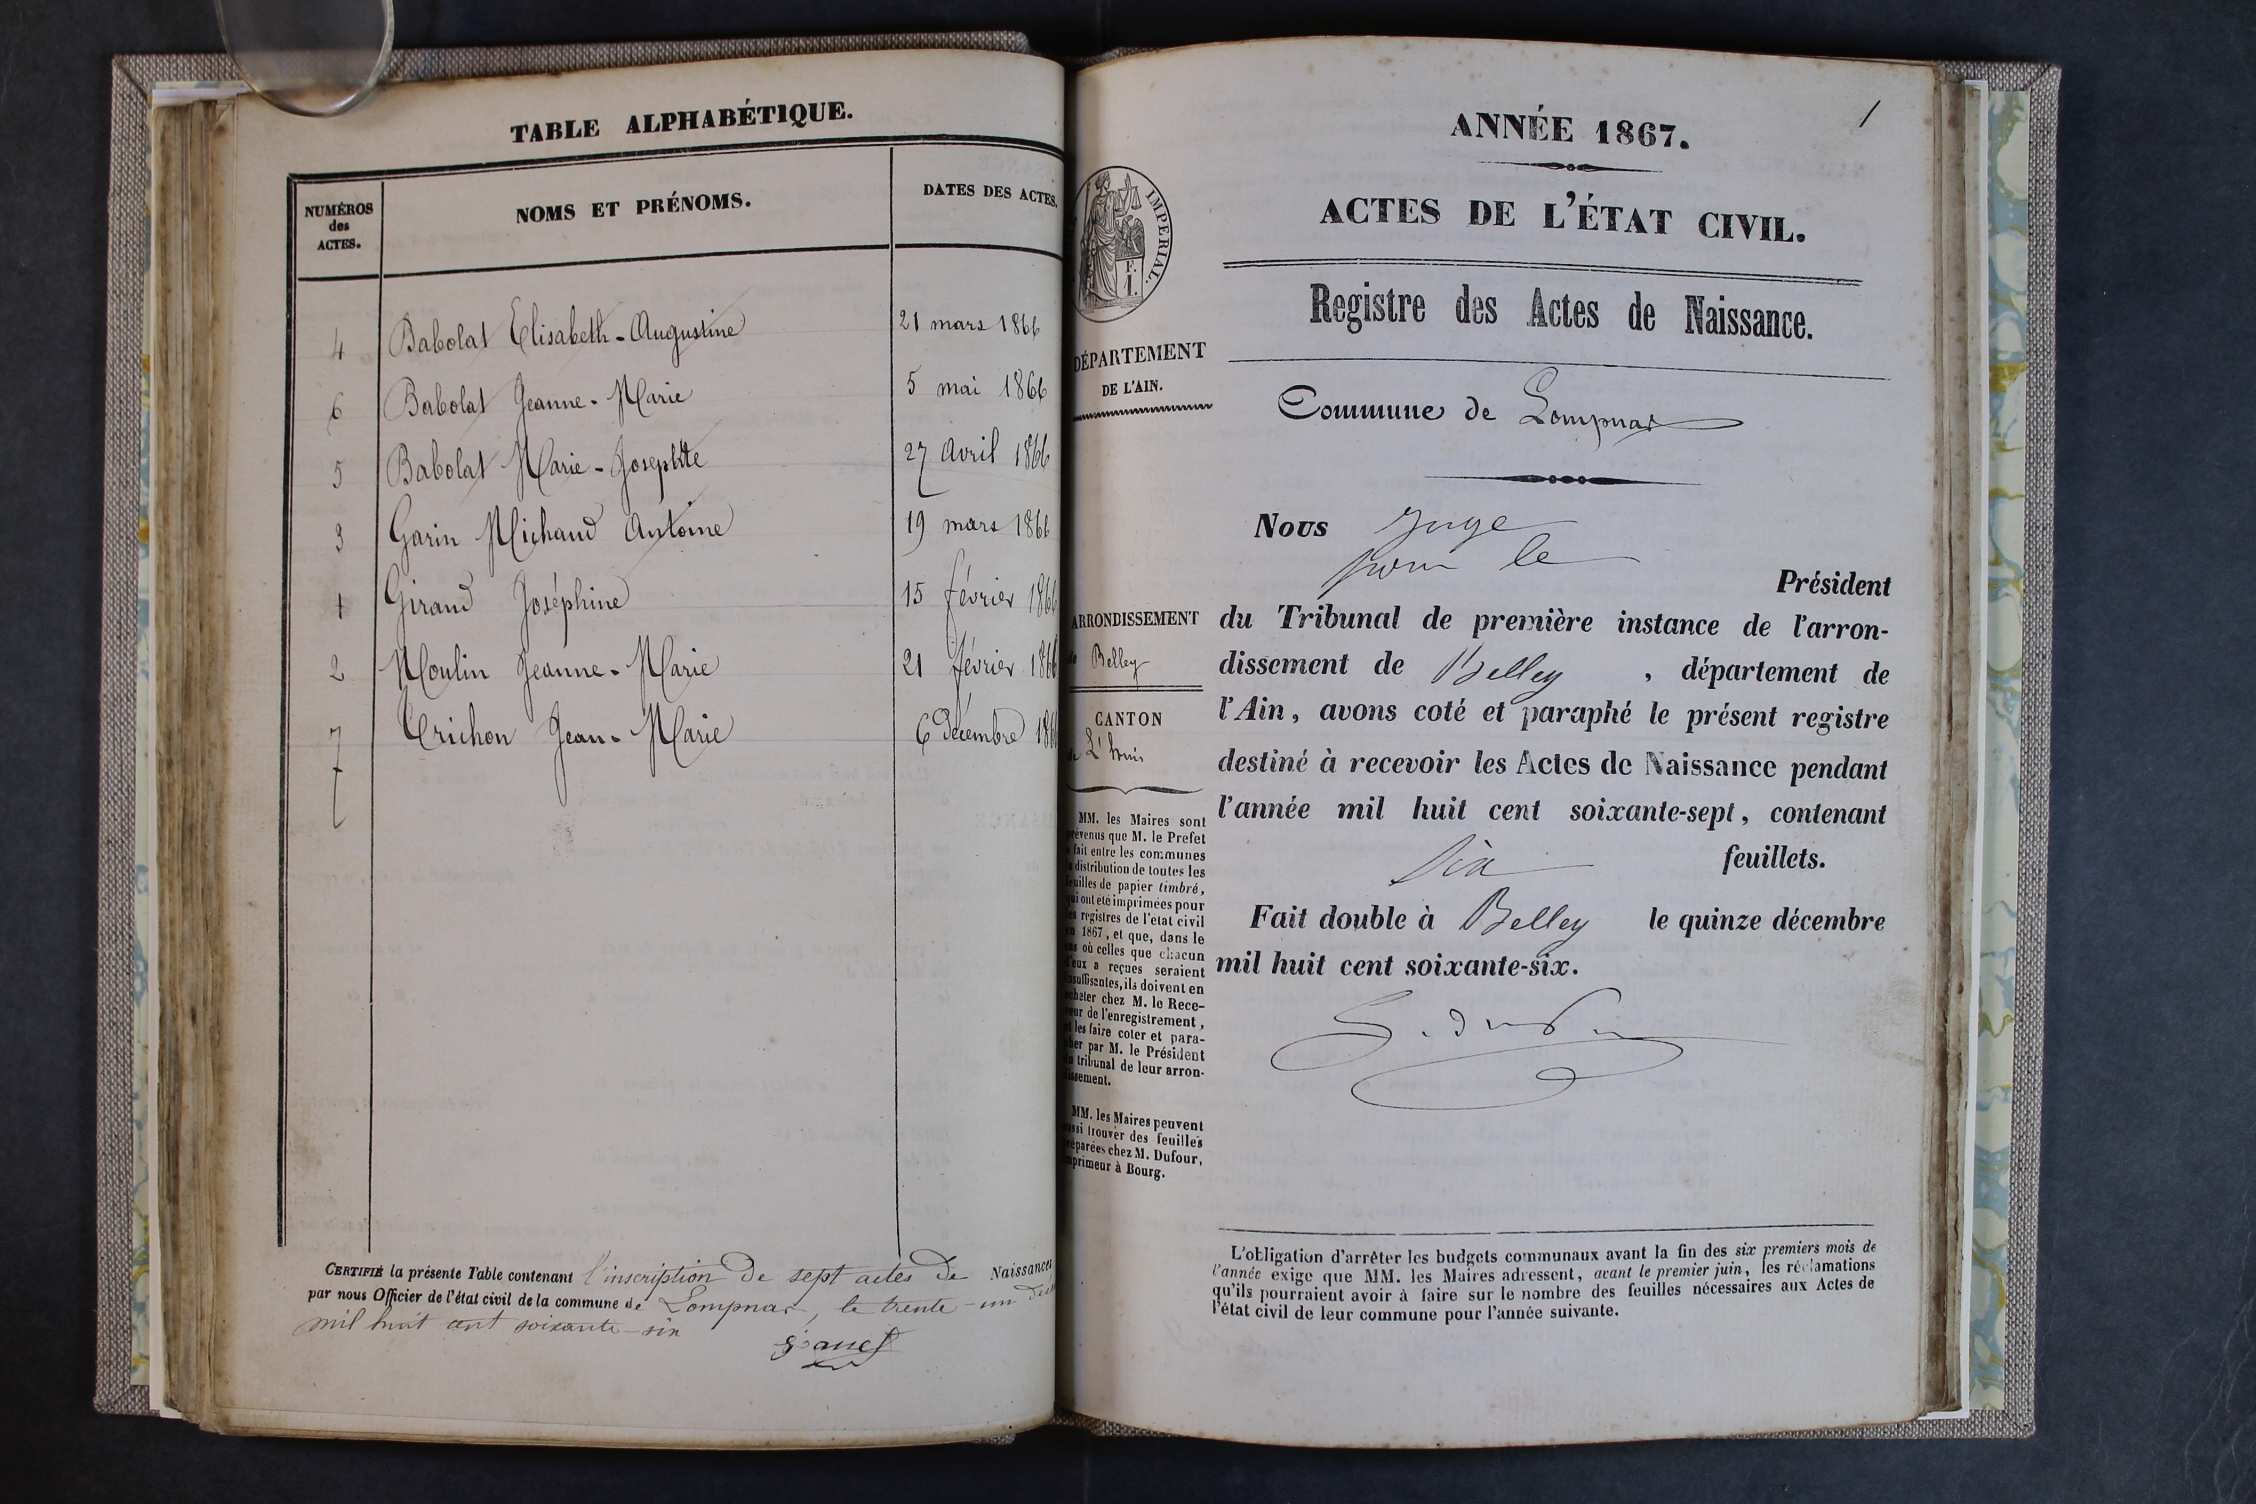 TABLE ALPHABÉTIQUE.
NUMÉROS des ACTES. NOMS ET PRÉNOMS. DATES DES ACTES.
4 Babolat Elisabeth-Augustine 21 mars 1866
6 Babolat Jeanne-Marie 5 mai 1866
5 Babolat Marie-Josephte 27 Avril 1866
3 Garin Michaud Antoine 19 mars 1866
1 Giraud Joséphine 15 février 1866
2 Moulin Jeanne-Marie 21 février 1866
7 Trichon Jean-Marie 6 décembre 1866
CERTIFIÉ la présente Table contenant l'inscription de sept actes de Naissances
par nous Officier de l'état civil de la commune de Lompnas, le trente-un
mil huit cent soixante-six
1
ANNÉE 1867.
ACTES DE L'ÉTAT CIVIL.
Registre des Actes de Naissance.
IMPERIAL.
F.
1.
DÉPARTEMENT
DE L'AIN.
Commune de Lompnas
Nous Juge
pour le
Président
ARRONDISSEMENT
de Belley
CANTON
de L'huis
du Tribunal de première instance de l'arron-
dissement de Belley, département de
l'Ain, avons coté et paraphé le présent registre
destiné à recevoir les Actes de Naissance pendant
l'année mil huit cent soixante-sept, contenant
six feuillets.
Fait double à Belley le quinze décembre
mil huit cent soixante-six.
MM. les Maires sont
prévenus que M. le Préfet
a fait entre les communes
la distribution de toutes les
feuilles de papier timbré,
qui ont été imprimées pour
les registres de l'état civil
en 1867, et que, dans le
cas où celles que chacun
d'eux a reçues seraient
insuffisantes, ils doivent en
acheter chez M. le Rece-
veur de l'enregistrement,
et les faire coter et para-
pher par M. le Président
du tribunal de leur arron-
dissement.
MM. les Maires peuvent
aussi trouver des feuilles
préparées chez M. Dufour,
imprimeur à Bourg.
L'obligation d'arrêter les budgets communaux avant la fin des six premiers mois de
l'année exige que MM. les Maires adressent, avant le premier juin, les réclamations
qu'ils pourraient avoir à faire sur le nombre des feuilles nécessaires aux Actes de
l'état civil de leur commune pour l'année suivante.